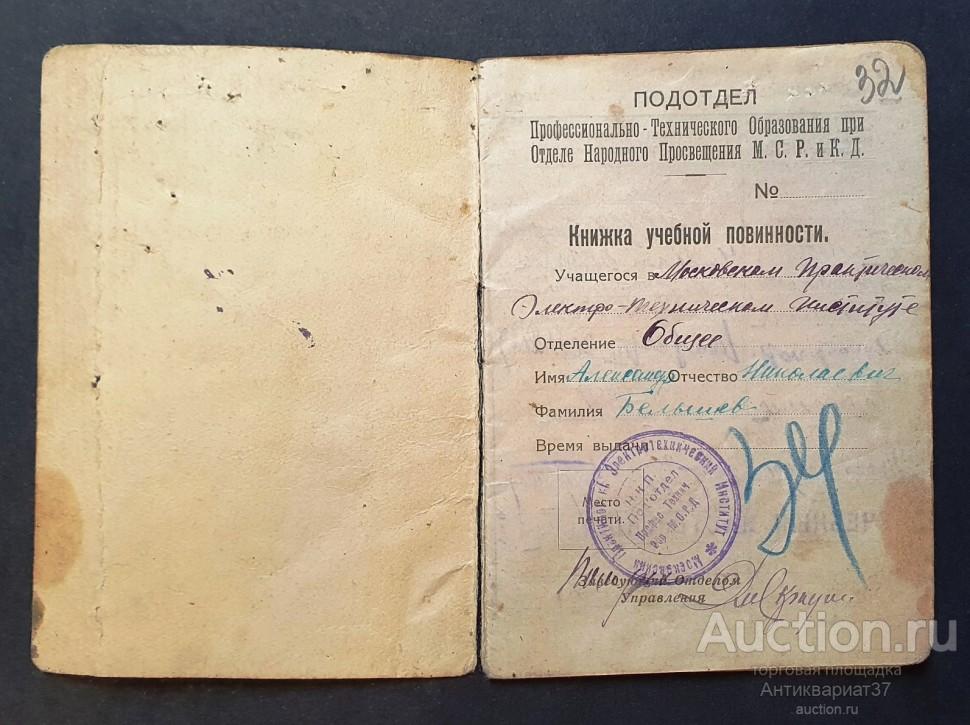 32
ПОДОТДЕЛ
Профессионально-Технического Образования при
Отделе Народного Просвещения М. С. Р. и К. Д.
№
Книжка учебной повинности.
Учащегося в Московском Практическом
Электро-техническом институте
Отделение Общее
Имя Александр Отчество Николаевич
Фамилия Белышев
Время выдачи
Место
печати.
Московский Практический Электротехнический Институт
Н.К.П.
Подотдел
Заведующий Отделом
Управления
Auction.ru
торговая площадка
Антиквариат37
auction.ru